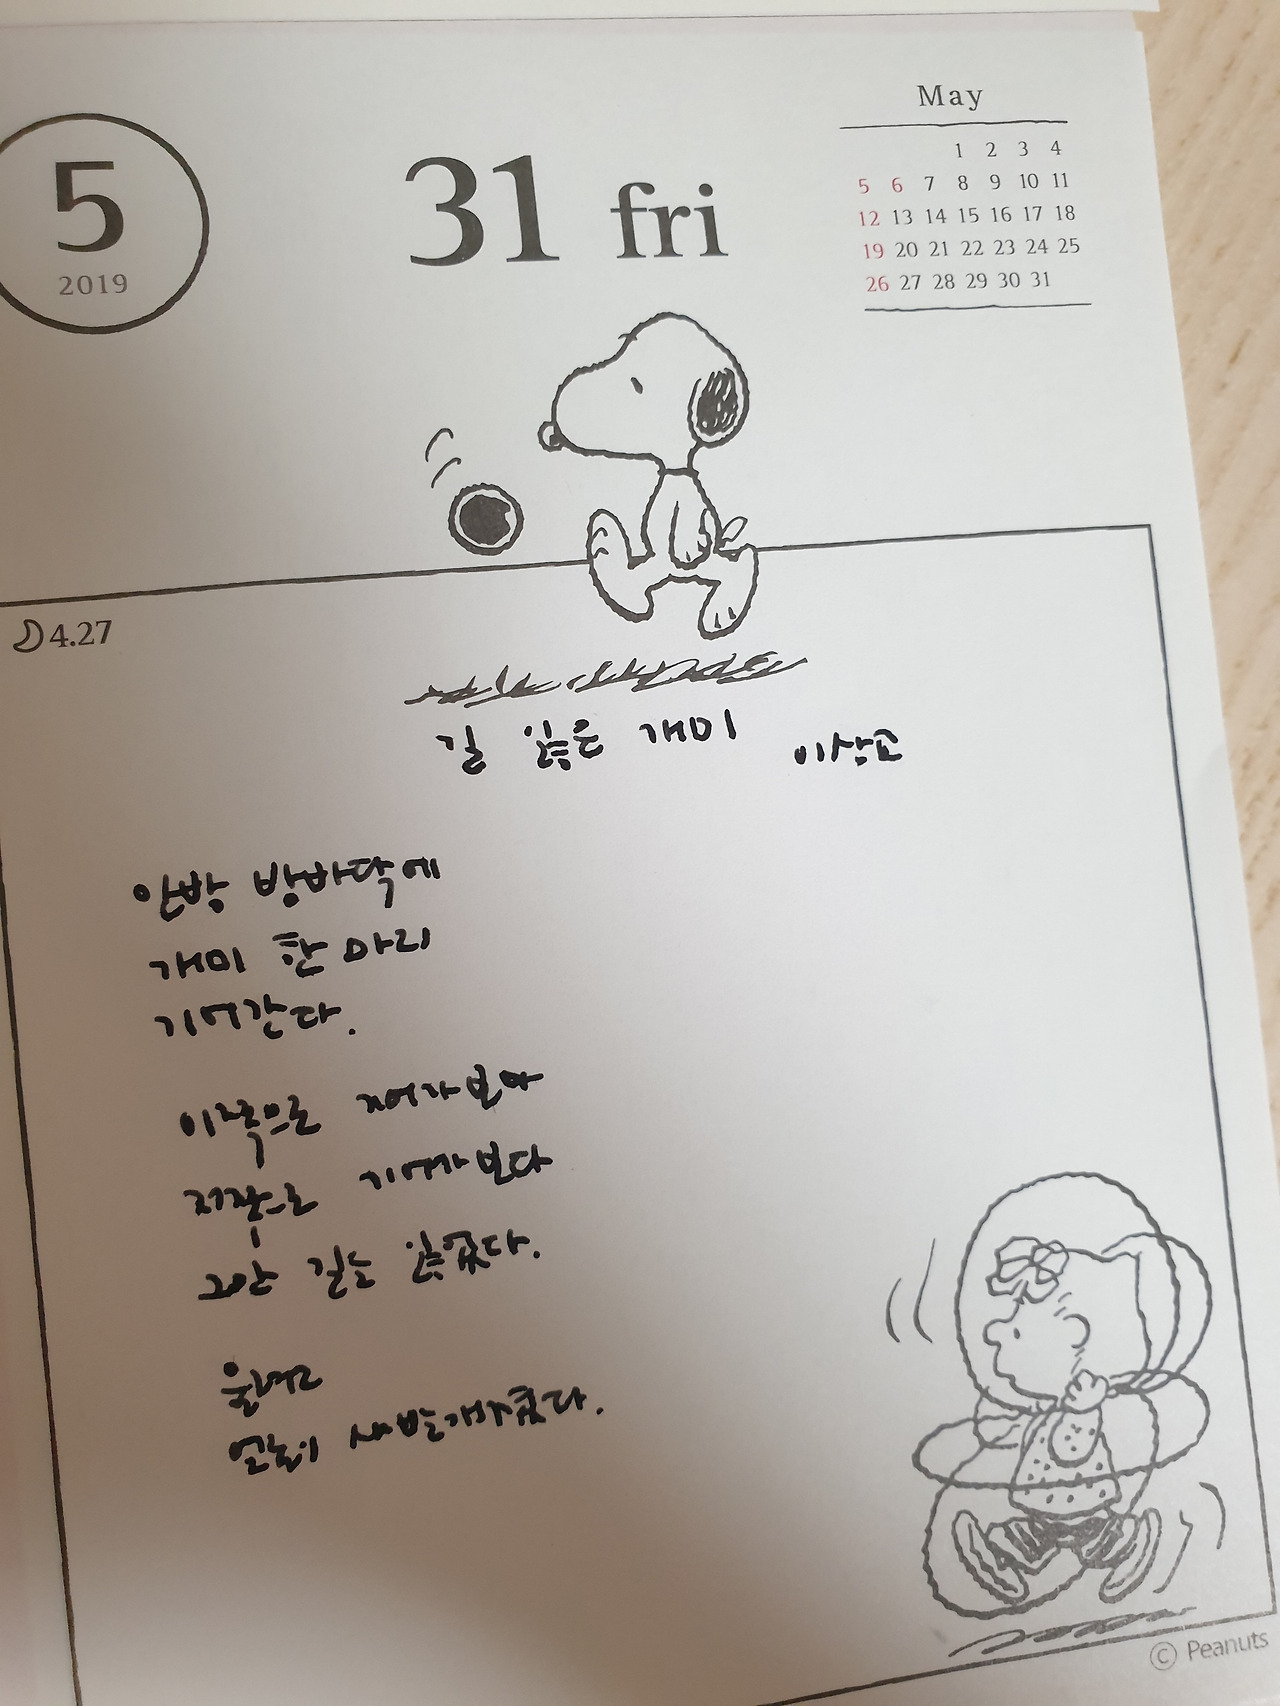 5
2019
31 fri
May
1 2 3 4
5 6 7 8 9 10 11
12 13 14 15 16 17 18
19 20 21 22 23 24 25
26 27 28 29 30 31
4.27
길 잃은 개미 이상교
안방 방바닥에
개미 한 마리
기어간다.
이쪽으로 기어가 보아
저쪽으로 기어가 보다
그만 길을 잃었다.
울려고
얼굴이 새빨개졌다.
© Peanuts